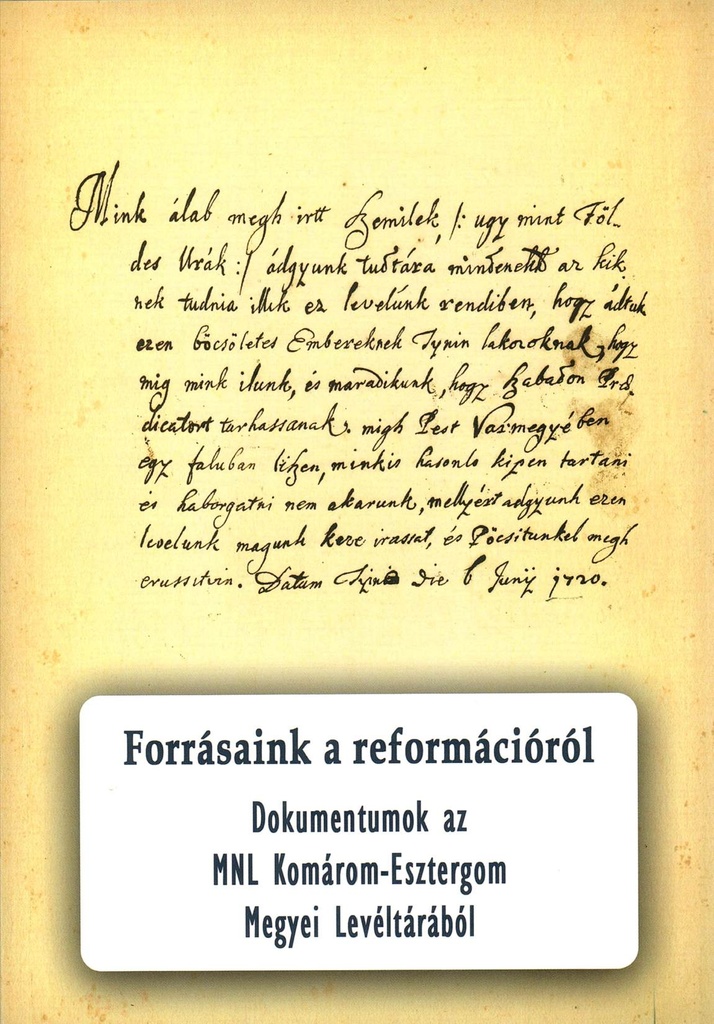 Mink álab megh irtt Szemilek, /: ugy mint Föl-
des Urák :/ ádgyunk tudtára mindenekk az kik
nek tudnia illik ez levelünk rendiben, hogy ádtuk
ezen böcsöletes Embereknek Tynin lakozoknak, hogy
mig mink ilunk, és maradikunk, hogy Szabadon Præ
dicatort tarhassanak. migh Pest Varmegyében
egy faluban liszen, minkis hasonlo kipen tartani
és haborgatni nem akarunk, mellyért adgyunk ezen
levelunk magunk keze irassat, és Pöcsitunkel megh
erussitvin. Datum die 6 Junij 1720.
Forrásaink a reformációról
Dokumentumok az
MNL Komárom-Esztergom
Megyei Levéltárából